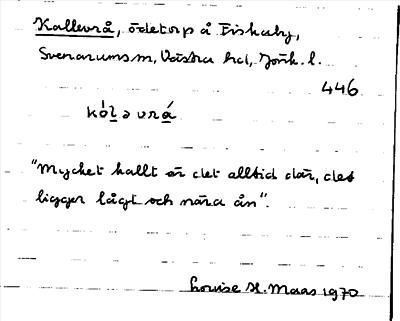 Kallevrå, ödetorp å Fiskaby,
Svenarums sn, Västra hd, Jönk. l.
446
kólə vrá
"Mycket kallt är det alltid där, det
ligger lågt och nära ån".
Louise H. Maas 1970